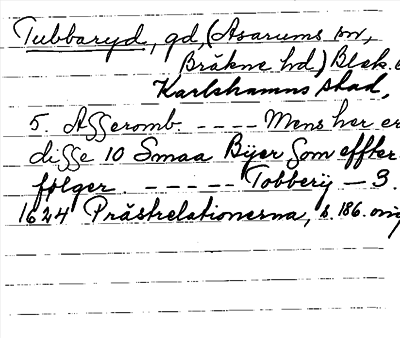 Tubbaryd, gd, (Asarums sn,
Bräkne hd.) Blek.
Karlshamns stad,
5. Asseromb. ---- Mens her er
disse 10 Smaa Bÿer som effter
følger ----- Tobberÿ — 3.
1624 Prästrelationerna, s. 186. orig